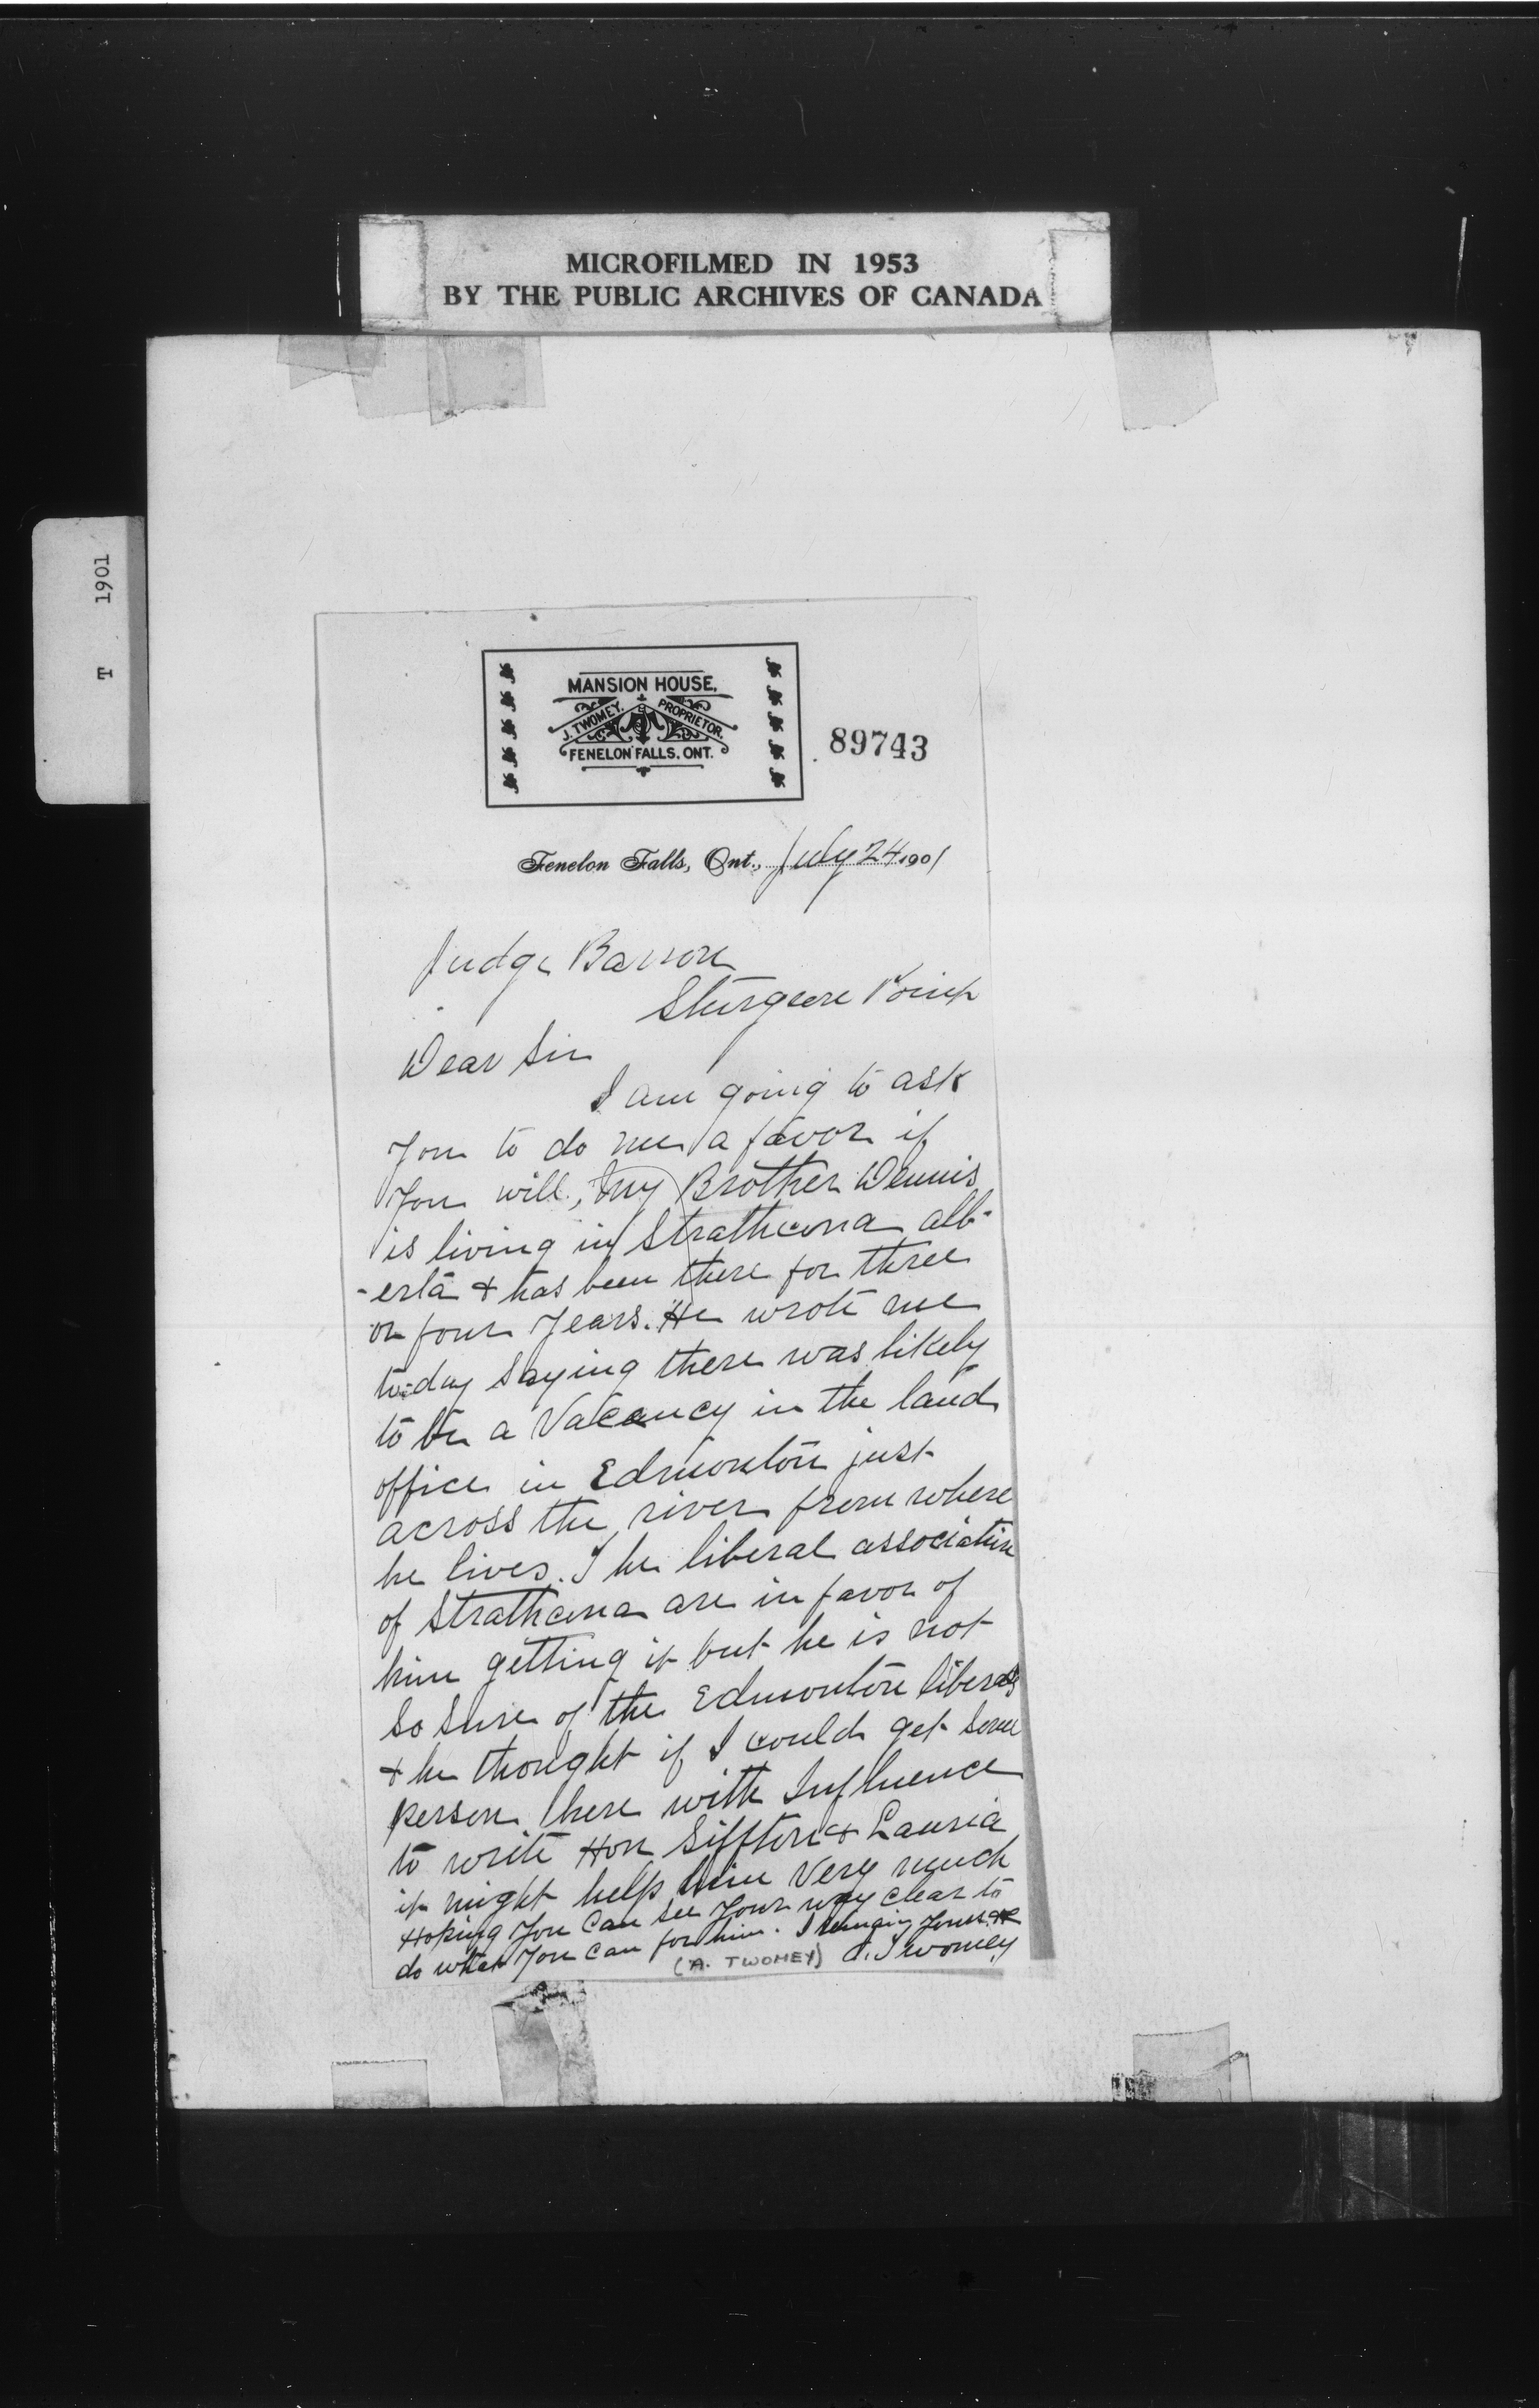 MICROFILMED IN 1953
BY THE PUBLIC ARCHIVES OF CANADA
T 1901
MANSION HOUSE,
J. TWOMEY, PROPRIETOR.
FENELON FALLS, ONT.
89743
Fenelon Falls, Ont., July 24 1901
Judge Barron
Sturgeon Point
Dear Sir
I am going to ask
you to do me a favor if
you will, my Brother Dennis
is living in Strathcona alb-
-erta & has been there for three
or four years. He wrote me
to-day saying there was likely
to be a Vacancy in the land
office in Edmonton just
across the river from where
he lives. The liberal association
of Strathcona are in favor of
him getting it but he is not
so sure of the Edmonton liberals
& he thought if I could get some
person here with Influence
to write Hon Siffton & Lauria
it might help him very much
Hoping you can see your way clear to
do what you can for him. I remain yours &c
(A. TWOMEY) A. Twomey